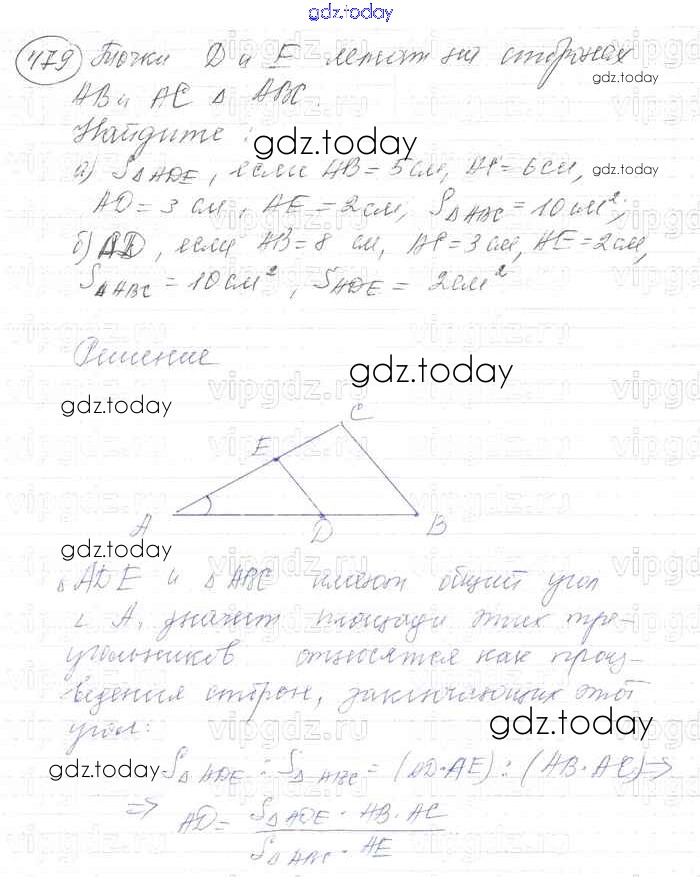 gdz.today
479 Точки D и E лежат на сторонах
gdz.today
AB и AC △ ABC.
Найдите:
gdz.today
а) S△ADE, если AB = 5 см, AC = 6 см,
gdz.today
AD = 3 см, AE = 2 см, S△ABC = 10 см²;
б) AD, если AB = 8 см, AC = 3 см, AE = 2 см,
S△ABC = 10 см², SADE = 2 см²
Решение
gdz.today
gdz.today
C
E
A D B
gdz.today
△ ADE и △ ABC имеют общий угол
∠ A, значит площади этих тре-
угольников относятся как произ-
ведения сторон, заключающих этот
угол:
gdz.today
gdz.today
S△ ADE : S△ ABC = (AD·AE) : (AB·AC) ⇒
⇒ AD = S△ ADE · AB · AC
S△ ABC · AE
gdz.today